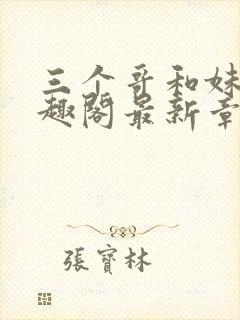 三个哥和妹
趣阁最新章
張寶林